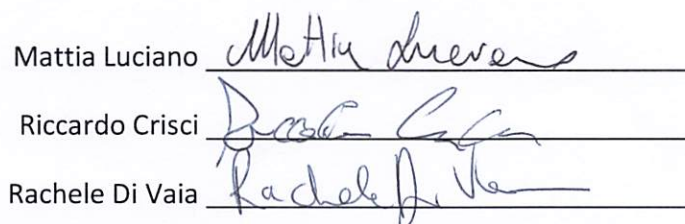 Mattia Luciano Mattia Luciano
Riccardo Crisci Riccardo Crisci
Rachele Di Vaia Rachele Di Vaia